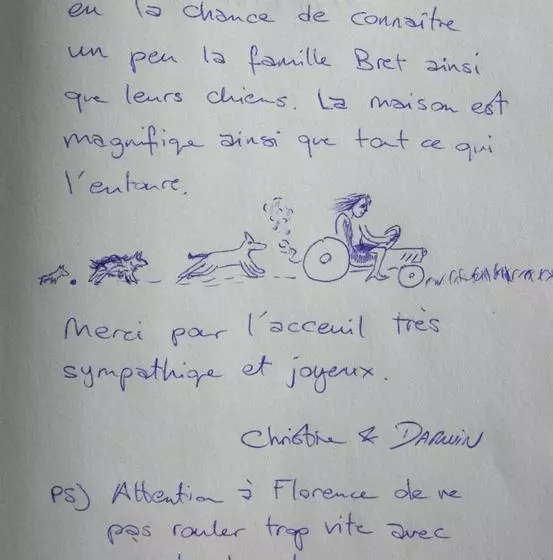 eu la chance de connaître
un peu la famille Bret ainsi
que leurs chiens. La maison est
magnifique ainsi que tout ce qui
l'entoure.
Merci pour l'acceuil très
sympathique et joyeux.
Christine & DARWIN
PS) Attention à Florence de ne
pas rouler trop vite avec